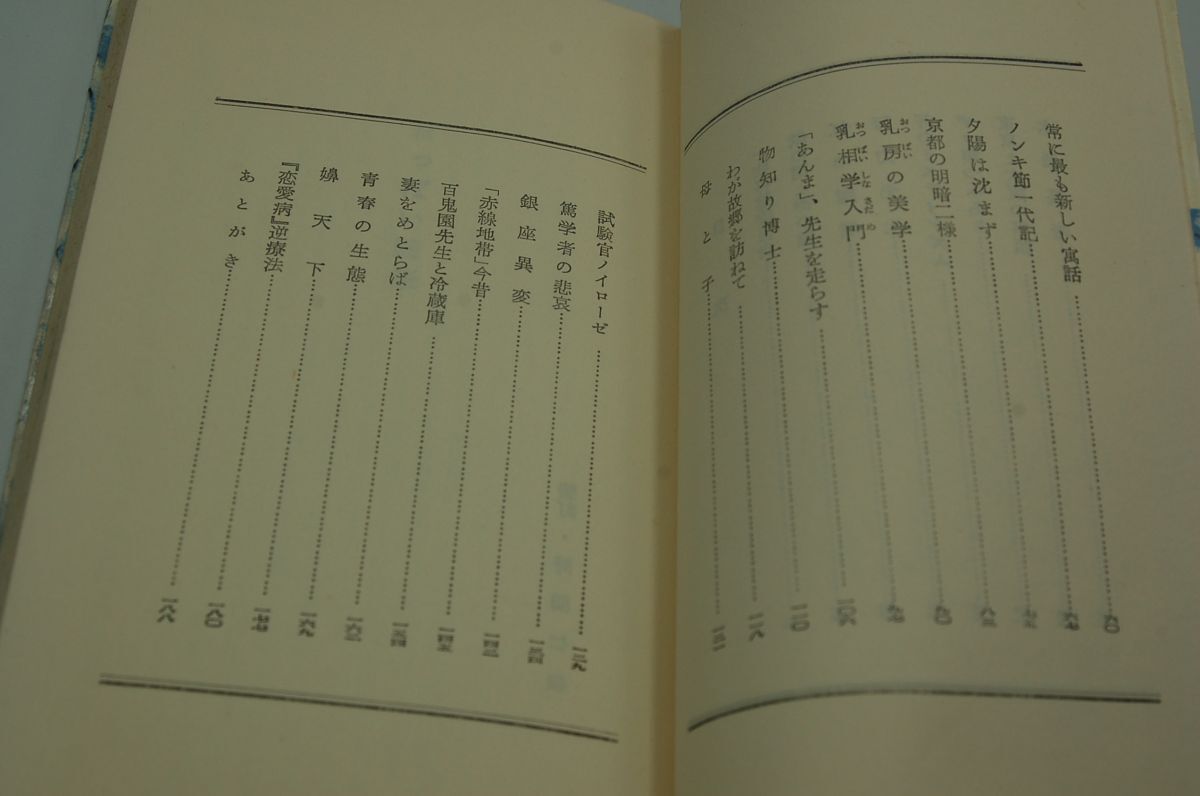 常に最も新しい寓話……六〇
ノンキ節一代記……六七
夕陽は沈まず……七五
京都の明暗二様……八三
乳房の美学……九〇
おつぱい
乳相学入門……九七
おつぱいしなさだめ
「あんま」、先生を走らす……一〇六
物知り博士……一一〇
わが故郷を訪ねて……一一八
母と子……一二一
試験官ノイローゼ……一二九
篤学者の悲哀……一三四
銀座異変……一四三
「赤線地帯」今昔……一四五
百鬼園先生と冷蔵庫……一五四
妻をめとらば……一六三
青春の生態……一六九
嬶天下……一七七
『恋愛病』逆療法……一八〇
あとがき……一八八